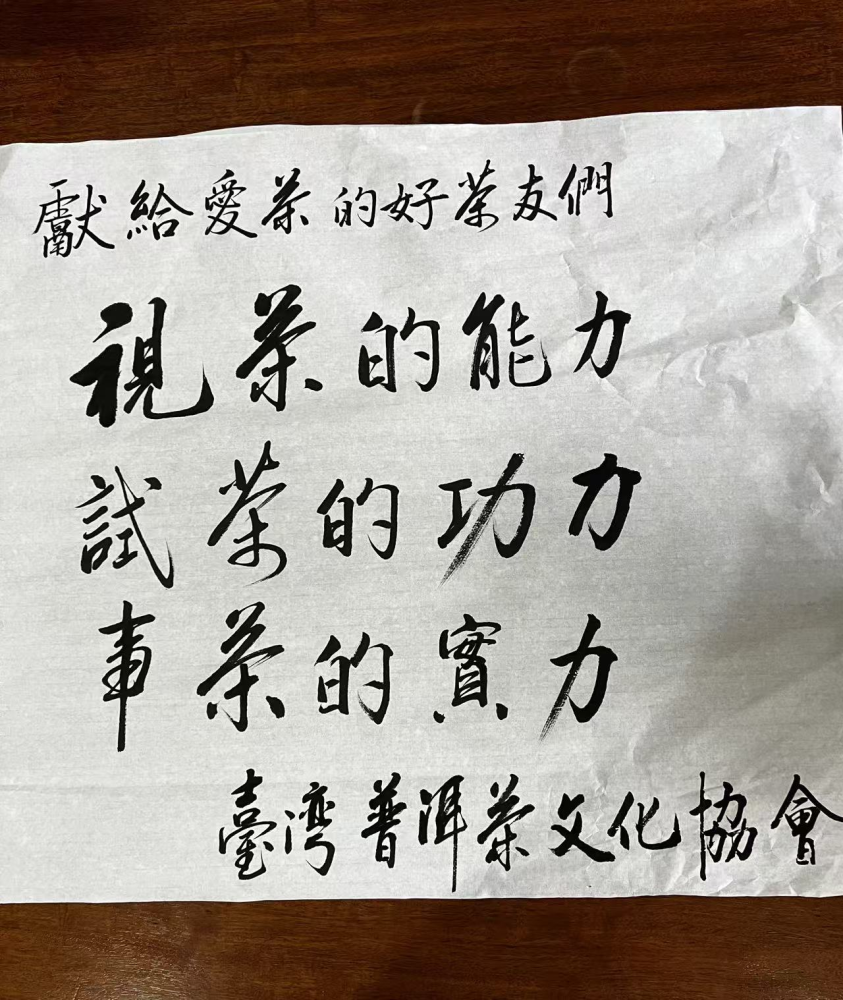 獻給愛茶的好茶友們
視茶的能力
試茶的功力
事茶的實力
臺湾普洱茶文化協會